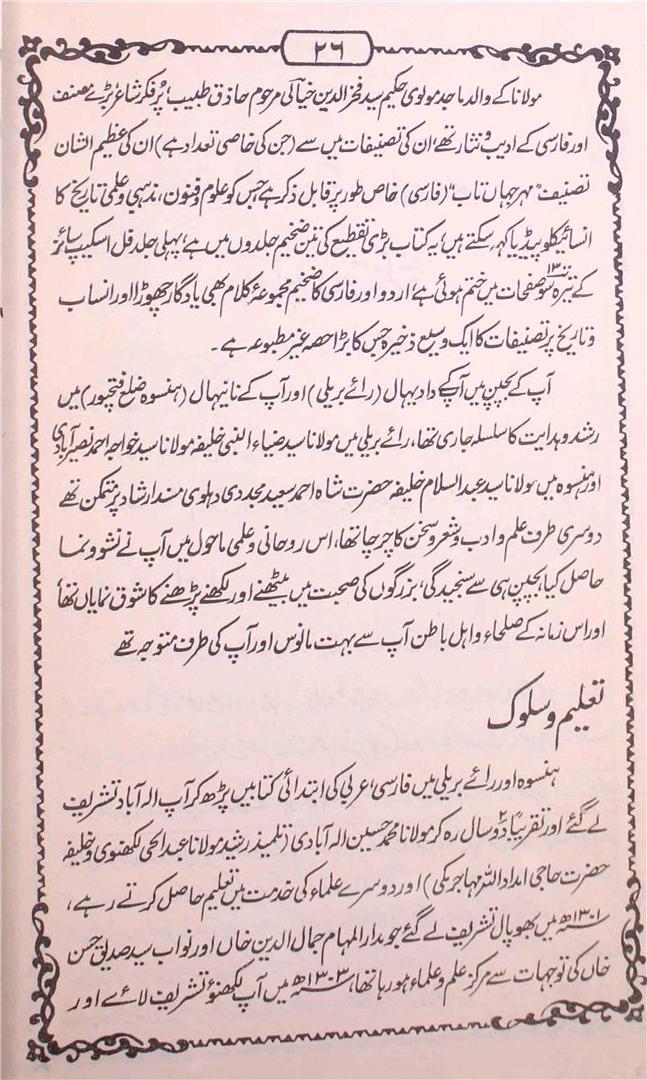 ۲۶
مولانا کے والد ماجد مولوی حکیم سید فخرالدین خیالی مرحوم حاذق طبیب، پُر فکر شاعر بڑے مصنف
اور فارسی کے ادیب و نثار تھے، ان کی تصنیفات میں سے (جن کی خاصی تعداد ہے) ان کی عظیم الشان
تصنیف "مہر جہاں تاب" (فارسی) خاص طور پر قابل ذکر ہے جس کو علوم و فنون، مذہبی و علمی تاریخ کا
انسائیکلوپیڈیا کہہ سکتے ہیں، یہ کتاب بڑی تقطیع کی تین ضخیم جلدوں میں ہے، پہلی جلد فل اسکیپ سائز
کے تیرہ سو ۱۳۰۰ صفحات میں ختم ہوئی ہے، اردو اور فارسی کا ضخیم مجموعۂ کلام بھی یادگار چھوڑا اور انساب
و تاریخ پر تصنیفات کا ایک وسیع ذخیرہ جس کا بڑا حصہ غیر مطبوعہ ہے۔
آپ کے بچپن میں آپکے دادیہال (رائے بریلی) اور آپ کے نانیہال (ہنسوہ ضلع فتحپور) میں
رشد و ہدایت کا سلسلہ جاری تھا، رائے بریلی میں مولانا سید ضیاء النبی خلیفہ مولانا سید خواجہ احمد نصیرآبادی
اور ہنسوہ میں مولانا سید عبدالسلام خلیفہ حضرت شاہ احمد سعید مجددی دہلوی مسند ارشاد پر متمکن تھے
دوسری طرف علم و ادب و شعر و سخن کا چرچا تھا، اس روحانی و علمی ماحول میں آپ نے نشو و نما
حاصل کیا، بچپن ہی سے سنجیدگی، بزرگوں کی صحبت میں بیٹھنے اور لکھنے پڑھنے کا شوق نمایاں تھا،
اور اس زمانہ کے صلحاء و اہل باطن آپ سے بہت مانوس اور آپ کی طرف متوجہ تھے
تعلیم و سلوک
ہنسوہ اور رائے بریلی میں فارسی، عربی کی ابتدائی کتابیں پڑھ کر آپ الہ آباد تشریف
لے گئے اور تقریباً دو سال رہ کر مولانا محمد حسین الہ آبادی (تلمیذ رشید مولانا عبدالحی لکھنوی و خلیفہ
حضرت حاجی امداد اللہ مہاجر مکی) اور دوسرے علماء کی خدمت میں تعلیم حاصل کرتے رہے،
۱۳۰۱ھ میں بھوپال تشریف لے گئے جو مدار المہام جمال الدین خاں اور نواب سید صدیق حسن
خاں کی توجہات سے مرکز علم و علماء ہو رہا تھا، ۱۳۰۳ھ میں آپ لکھنؤ تشریف لائے اور